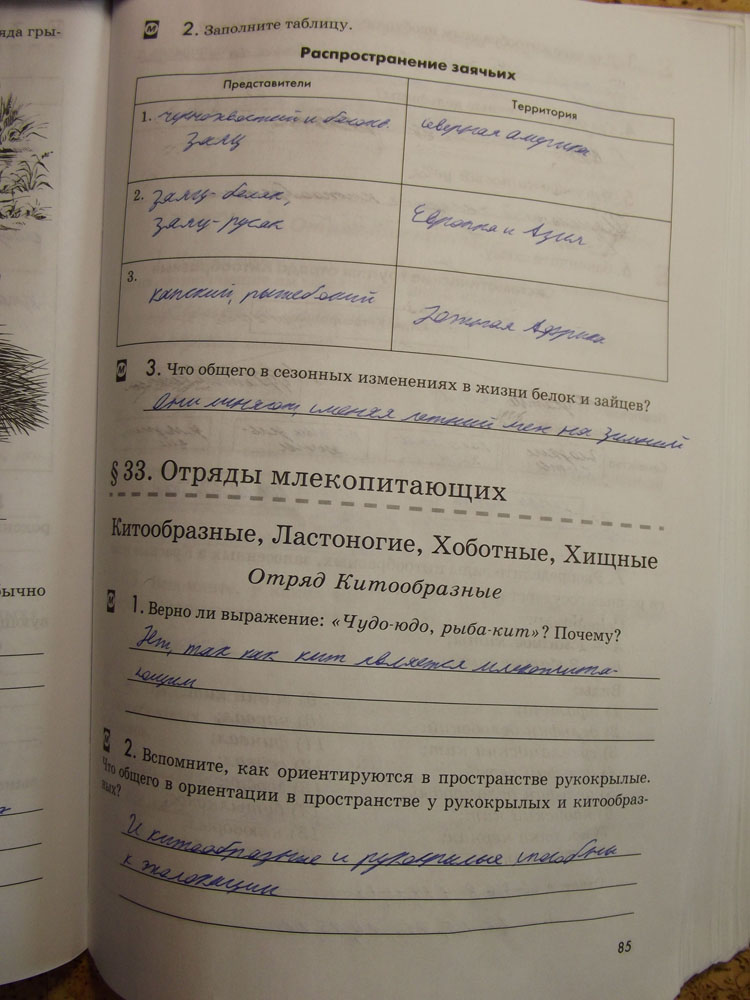 яда гры-
2. Заполните таблицу.
Распространение заячьих
Представители
Территория
1. чернохвостый и белохв.
заяц
северная америка
2. заяц-беляк,
заяц-русак
Европа и Азия
3.
капский, рыжебокий
Южная Африка
3. Что общего в сезонных изменениях в жизни белок и зайцев?
Они линяют, меняя летний мех на зимний
§ 33. Отряды млекопитающих
Китообразные, Ластоногие, Хоботные, Хищные
Отряд Китообразные
1. Верно ли выражение: «Чудо-юдо, рыба-кит»? Почему?
Нет, так как кит является млекопита-
ющим
бычно
2. Вспомните, как ориентируются в пространстве рукокрылые.
Что общего в ориентации в пространстве у рукокрылых и китообраз-
ных?
И китообразные и рукокрылые способны
к эхолокации
85